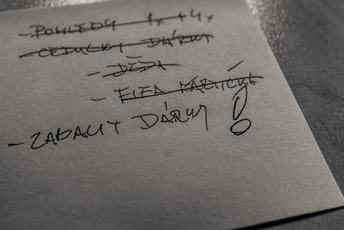 - POHLEDY 1x + 4x
- CEDULKY DÁRKY
- DĚDA
- ELFA
- ZABALIT DÁRKY !